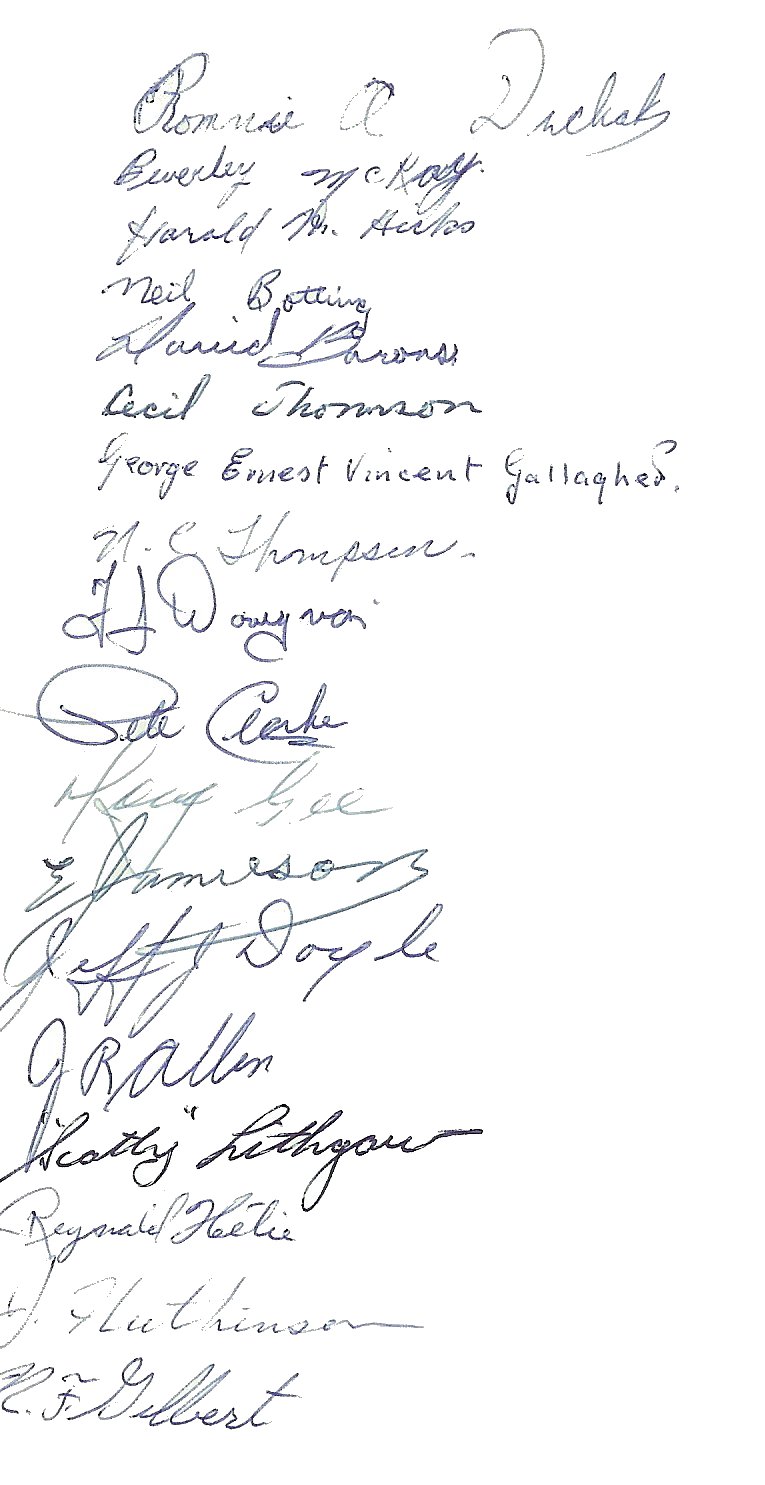 Ronnie A Duchak
Beverley McKay.
Harald M. Hicks
Neil Botting
David Barons
Cecil Thomson
George Ernest Vincent Gallagher.
N. C Thompson.
FJ
Pete Clarke
Gee
E Jamieson
Jeff J Doyle
J R Allen
"Scotty" Lithgow
Reynald Hélie
J. Hutchinson
R. F. Gilbert